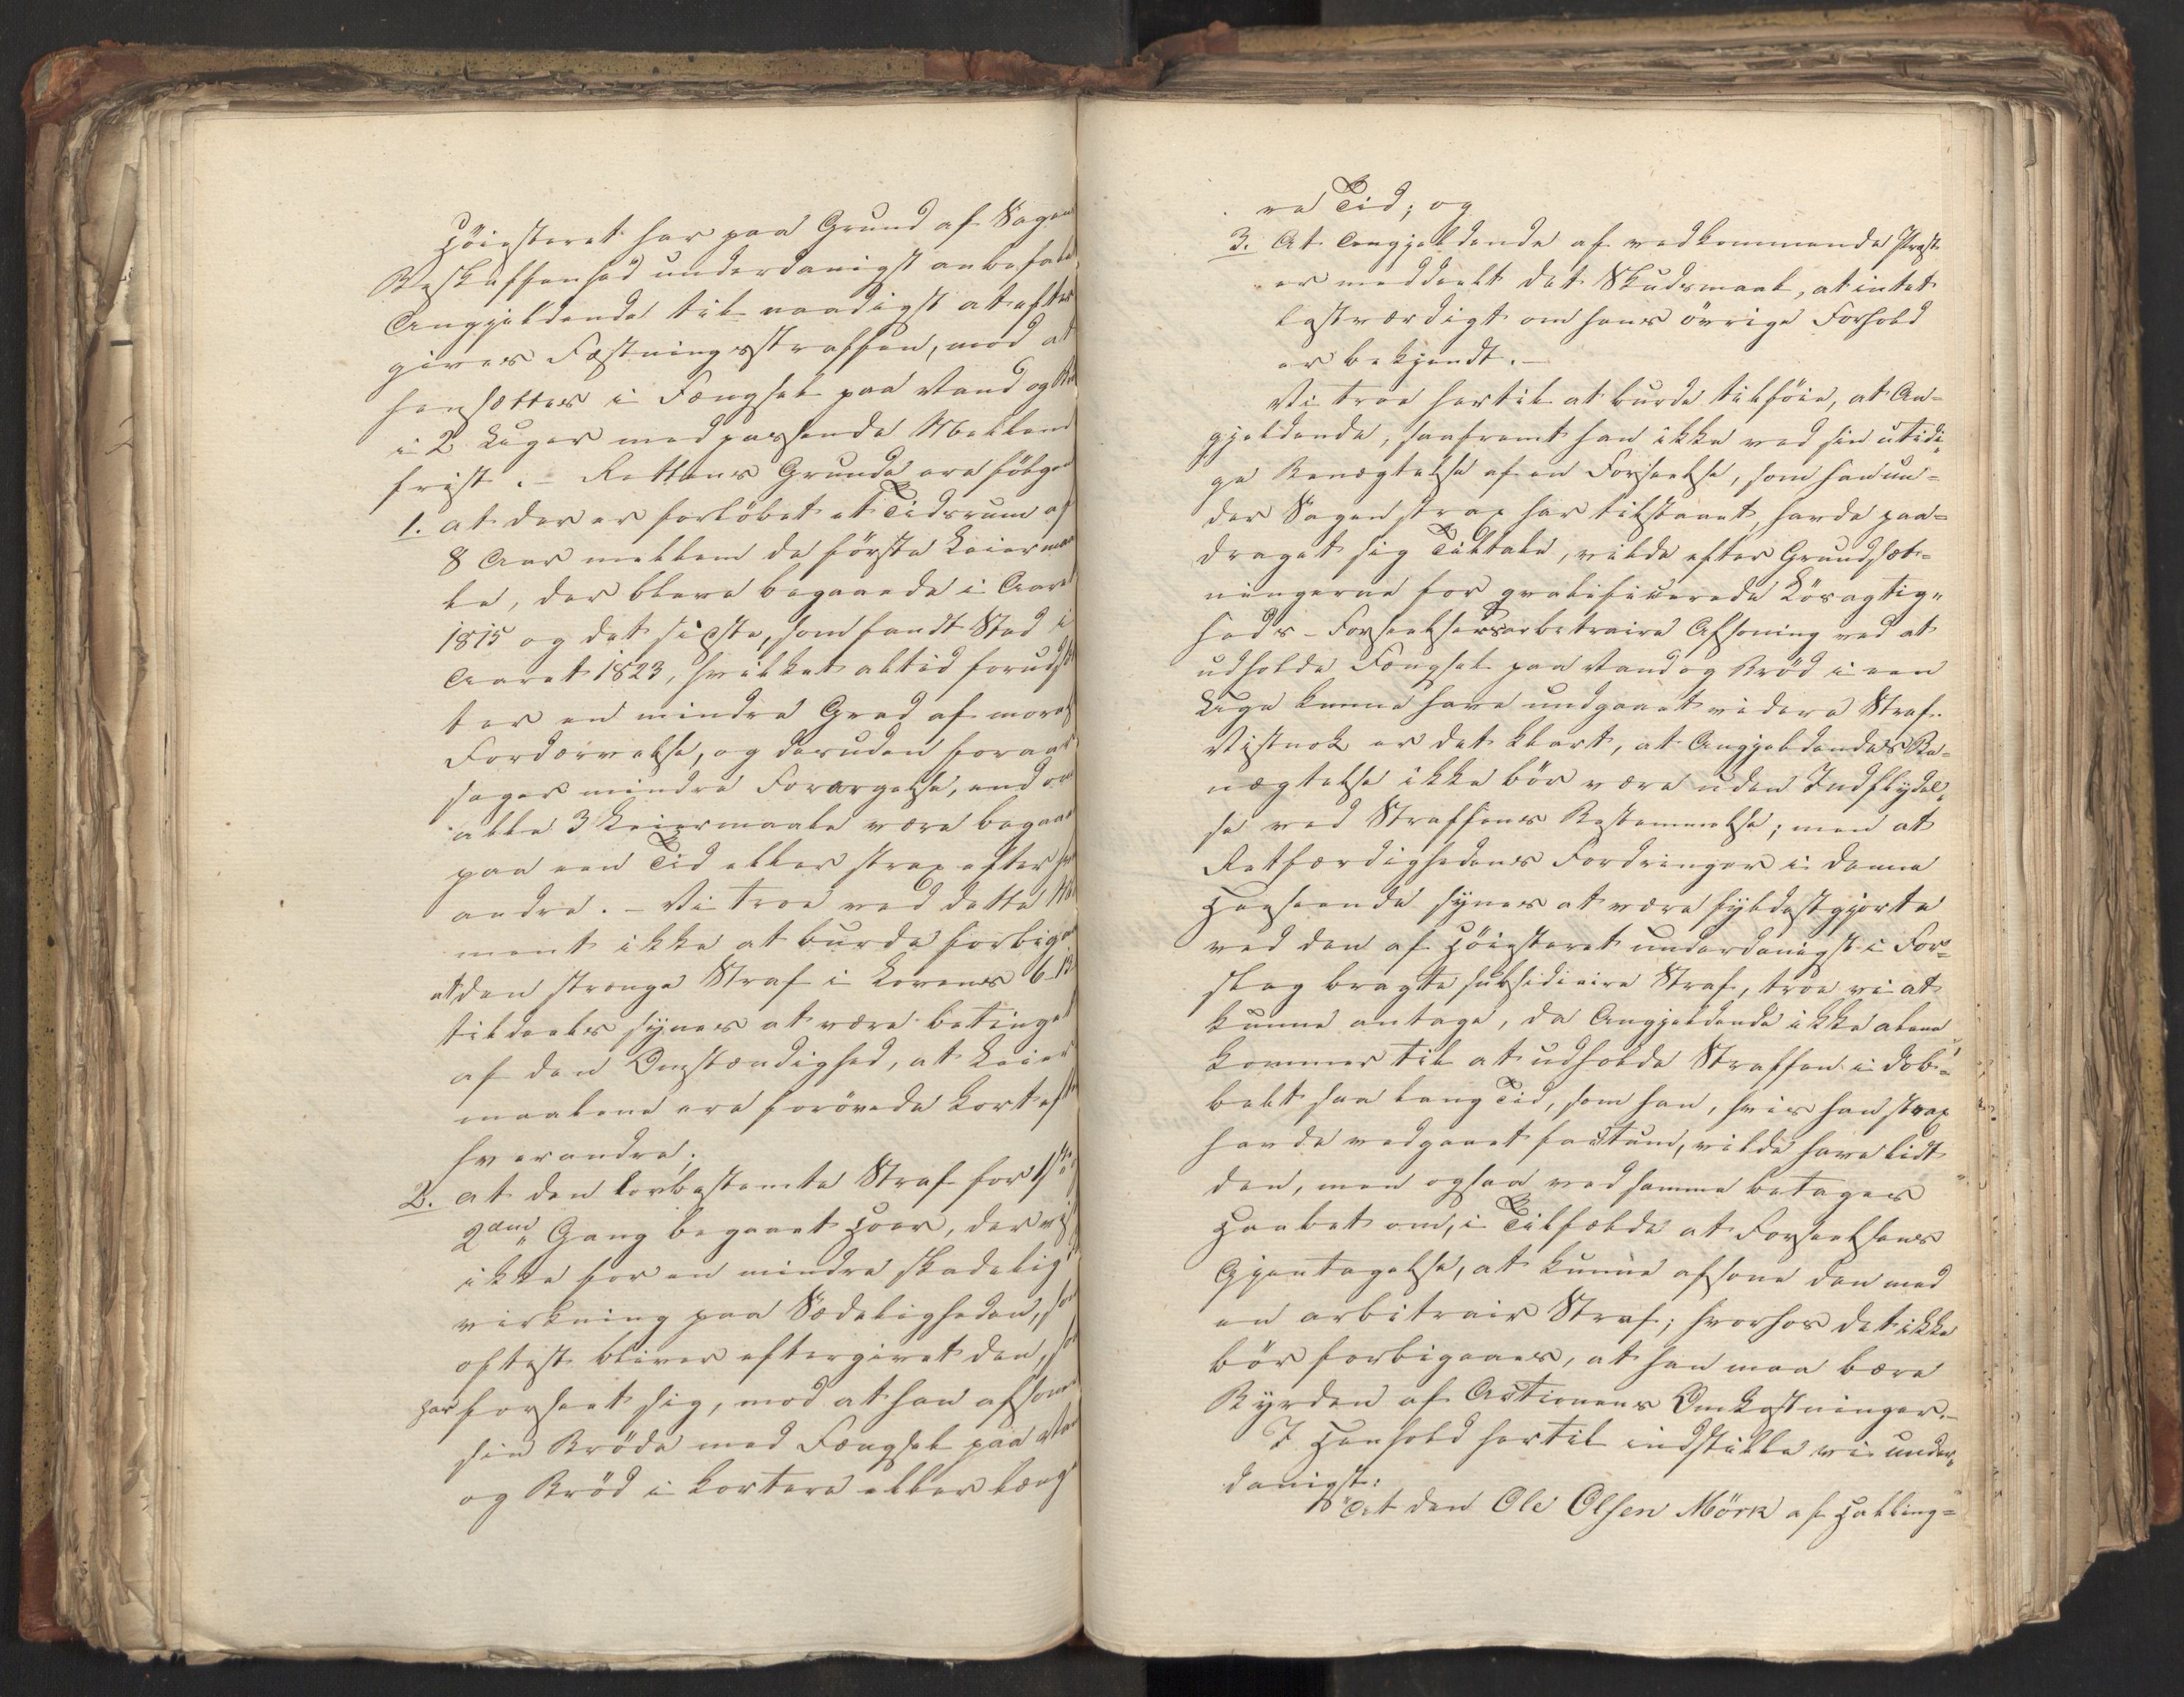 Höiesteret har paa Grund af Sagens
Beskaffenhed underdanigst anbefalet
Angjeldende til naadigst at efter
gives Fæstningsstraffen, mod at
hensættes i Fængsel paa Vand og Brød
i 2 Uger med passende Mellem
frist. – Rettens Grunde ere følgen
1. at der er forløbet et Tidsrum af
8 Aar mellem de første Leiermaa
le, der bleve begaaede i Aaret
1815 og det sidste, som fandt Sted i
Aaret 1823, hvilket altid forudsæt
ter en mindre Grad af moralsk
Fordærvelse, og desuden foraar
sager mindre Forargelse, end om
alle 3 Leiermaale vare begaaede
paa een Tid eller strax efter hver
andre. – Vi troe ved dette Mo
ment ikke at burde forbigaae
at den strenge Straf i Lovens 6–13
tildeels synes at være betinget
af den Omstændighed, at Leier
maalene ere forøvede kort efter
hverandre;
2. at den lovbestemte Straf for 1ste og
2den Gang begaaet Hoer, der vist
ikke har en mindre skadelig Ind
virkning paa Sædeligheden, som
oftest bliver eftergivet den, som
har forseet sig, mod at han afsoner
sin Brøde med Fængsel paa Vand
og Brød i kortere eller læng
re Tid; og
3. At Angjeldende af vedkommende Præst
er meddeelt det Skudsmaal, at intet
lastværdigt om hans øvrige Forhold
er bekjendt. –
Vi troe hertil at burde tilføie, at An=
gjeldende, saafremt han ikke ved sin utidi
ge Benægtelse af en Forseelse, som han un=
der Sagen strax har tilstaaet, havde paa=
draget sig Tiltale, vilde efter Grundsæt=
ningerne for qvalificerede Løsagtig=
heds-Forseelsers arbitraire Afsoning ved at
udholde Fængsel paa Vand og Brød i een
Uge kunne have undgaaet videre Straf.
Vistnok er det klart, at Angjeldendes Be=
nægtelse ikke bør være uden Indflydel=
se ved Straffens Bestemmelse; men at
Retfærdighedens Fordringer i denne
Henseende synes at være fyldestgjorte
ved den af Høiesteret underdanigst i For=
slag bragte subsidiaire Straf, troe vi at
kunne antage, da Angjeldende ikke alene
kommer til at udholde Straffen i dob=
belt saa lang Tid, som han, hvis han strax
havde vedgaaet factum, vilde have lidt
den, men ogsaa ved samme betages
Haabet om, i Tilfælde at Forseelsens
Gjentagelse, at kunne afsone den med
en arbitrair Straf; hvorhos det ikke
bør forbigaaes, at han maa bære
Byrden af Actionens Omkostninger. –
I Henhold hertil indstille vi under=
danigst:
At den Ole Olsen Mörk af Halling=